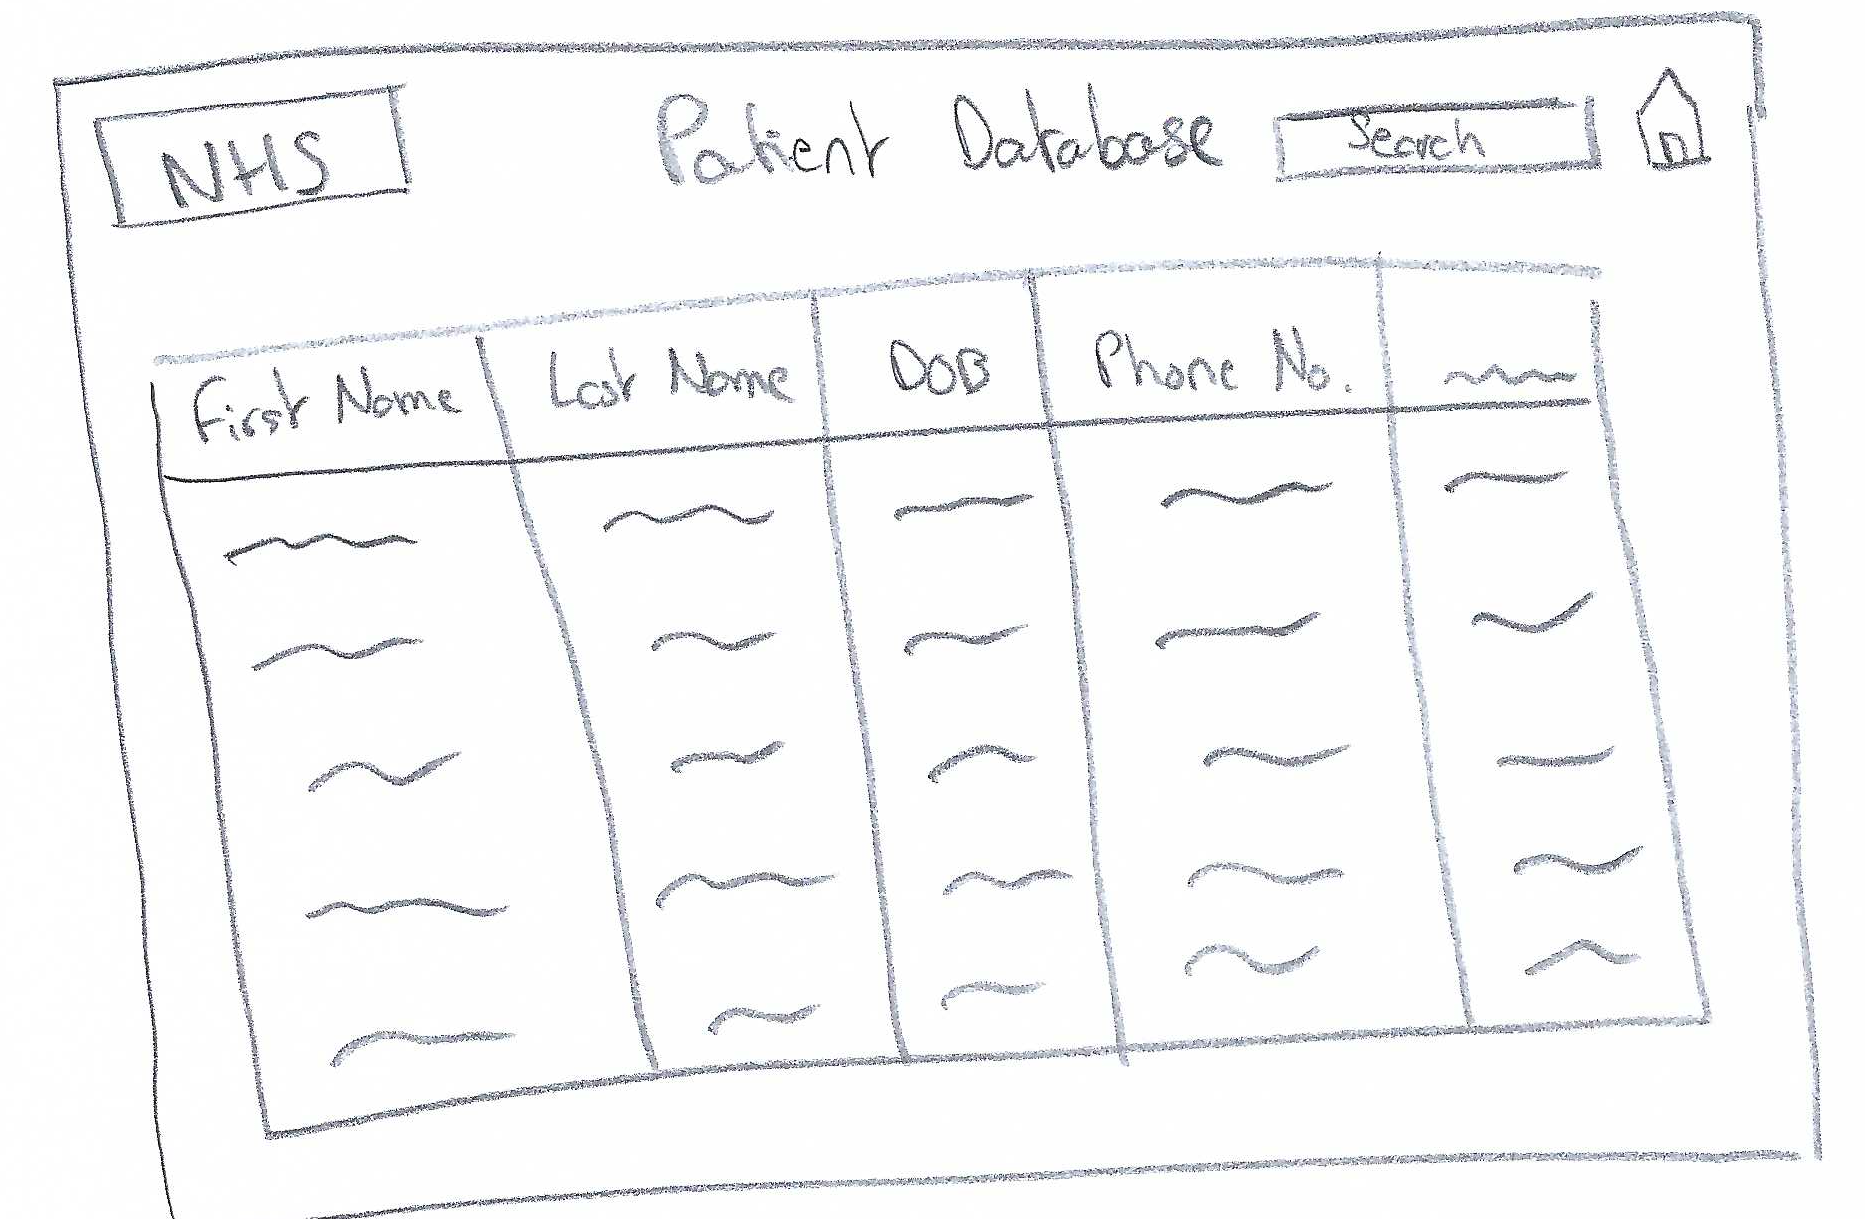 NHS
Patient Database
Search
First Name
Last Name
DOB
Phone No.